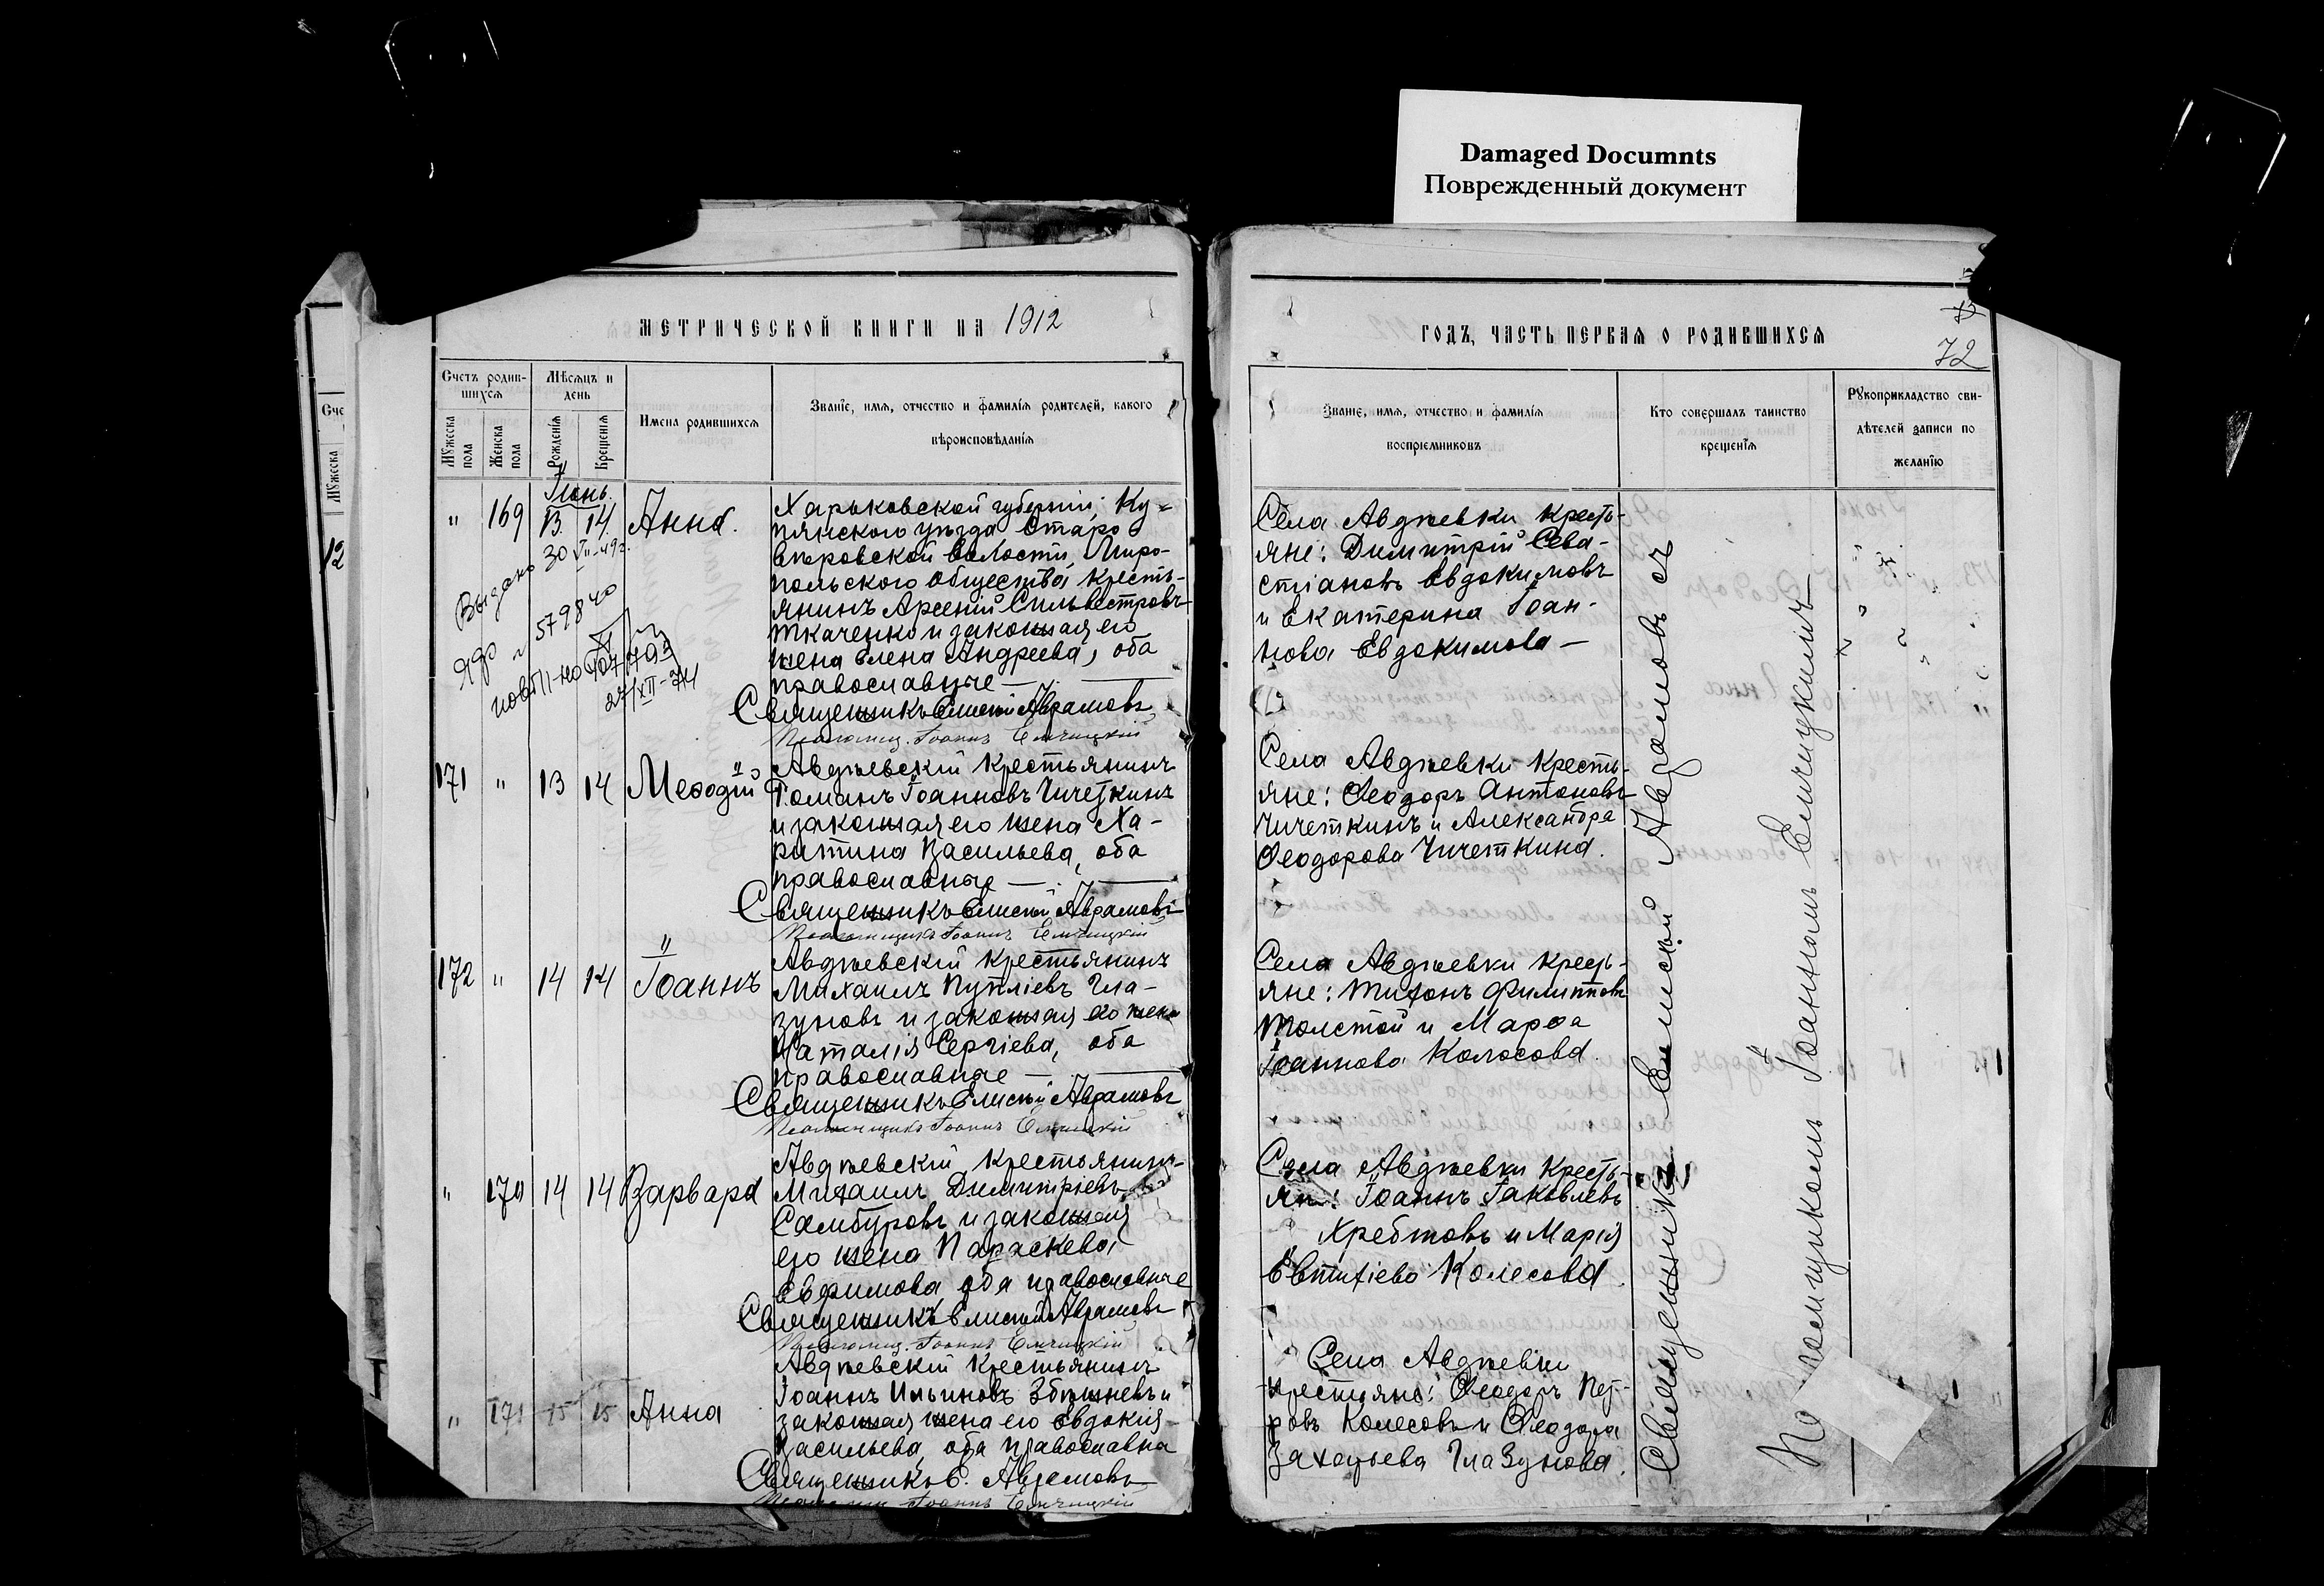 Damaged Documnts
Поврежденный документ
МЕТРИЧЕСКОЙ КНИГИ НА 1912
ГОДЪ, ЧАСТЬ ПЕРВАЯ О РОДИВШИХСЯ
72
Счетъ родив-
шихся
Мѣсяцъ и
день
Мужеска
пола
Женска
пола
Рожденія
Крещенія
Имена родившихся
Званіе, имя, отчество и фамилія родителей, какого
вѣроисповѣданія
Званіе, имя, отчество и фамилія
воспріемниковъ
Кто совершалъ таинство
крещенія
Рукоприкладство сви-
дѣтелей записи по
желанію
Сче
Мужеска
12
Іюнь.
" 169 13. 14. Анна.
Выдано 30 VII-49г.
ЯФ № 579840
27/XII-74
Харьковской губерніи, Ку-
пянскаго уѣзда Старо
вѣровской волости, Миро-
польскаго общества кресть-
янинъ Арсеній Сильвестровъ
Ткаченко и законная его
жена Елена Андреева, оба
православные —
Священникъ Елисей Аврамовъ
Псаломщ. Іоаннъ Ельчицкій
Села Авдѣевки кресть-
яне: Димитрій Сева-
стіановъ Евдокимовъ
и Екатерина Іоан-
нова Евдокимова —
171 " 13 14 Меѳодій
Авдѣевскій крестьянинъ
Романъ Іоанновъ Чичеткинъ
и законная его жена Ха-
ритина Васильева, оба
православные —
Священникъ Елисей Аврамовъ
Псаломщикъ Іоаннъ Ельчицкій
Села Авдѣевки кресть-
яне: Ѳеодоръ Антоновъ
Чичеткинъ и Александра
Ѳеодорова Чичеткина.
172 " 14 14 Іоаннъ
Авдѣевскій крестьянинъ
Михаилъ Пупліевъ Гла-
зуновъ и законная его жена
Наталія Сергіева, оба
православные —
Священникъ Елисей Аврамовъ
Псаломщикъ Іоаннъ Ельчицкій
Села Авдѣевки кресть-
яне: Тихонъ Филипповъ
Толстой и Марѳа
Іоаннова Колосова.
" 170 14 14 Варвара
Авдѣевскій крестьянинъ
Михаилъ Димитріевъ
Самбуровъ и законная
его жена Параскева
Евфимова оба православные
Священникъ Елисей Аврамовъ
Псаломщ. Іоаннъ Ельчицкій
Села Авдѣевки кресть-
яне: Іоаннъ Іаковлевъ
Хребтовъ и Марія
Евтихіева Колесова.
" 171 15 15 Анна
Авдѣевскій крестьянинъ
Іоаннъ Ильиновъ Збрижневъ и
законная жена его Евдокія
Васильева, оба православна
Священникъ Е. Аврамовъ
Іоаннъ Ельчицкій
Села Авдѣевки
крестьяне: Ѳеодоръ Пет-
ровъ Колесовъ и Ѳеодора
Захарьева Глазунова.
Священникъ Елисей Аврамовъ съ
Псаломщикомъ Іоанномъ Ельчицкимъ